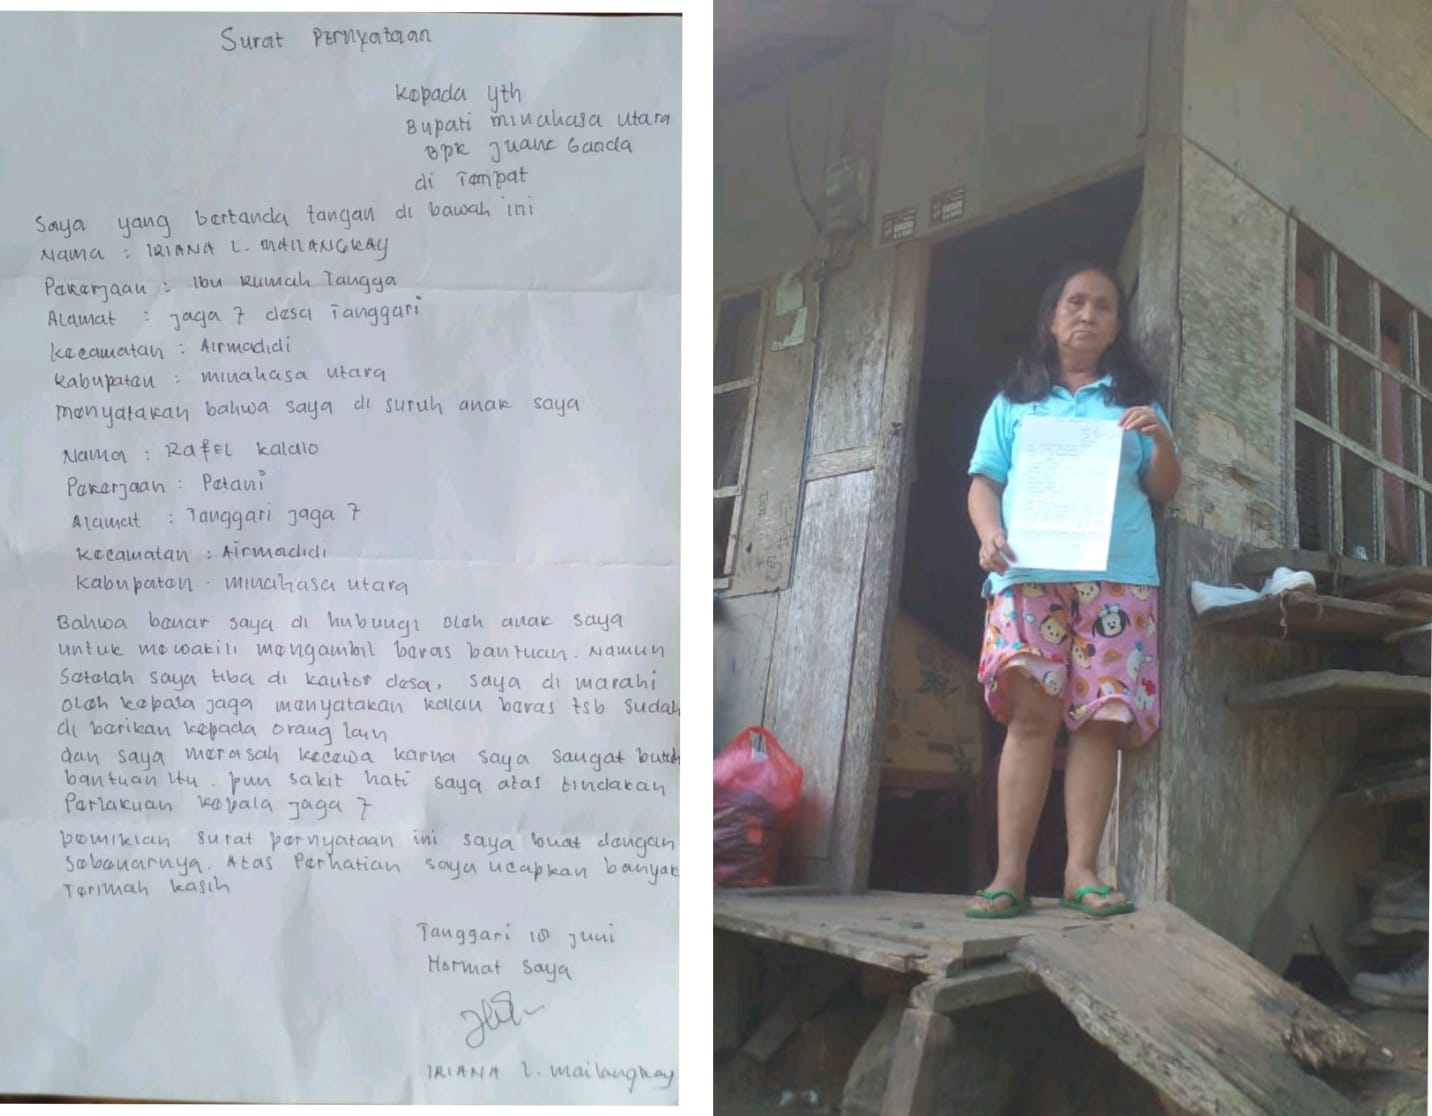 Surat Pernyataan
Kepada Yth
Bupati minahasa utara
Bpk Juane Ganda
di Tempat
Saya yang bertanda tangan di bawah ini
Nama : IRIANA L. MAILANGKAY
Pekerjaan : Ibu Rumah Tangga
Alamat : jaga 7 desa Tanggari
kecamatan : Airmadidi
kabupaten : minahasa utara
menyatakan bahwa saya di suruh anak saya
Nama : RafEL Kalalo
Pekerjaan : Petani
Alamat : Tanggari jaga 7
kecamatan : Airmadidi
kabupaten : minahasa utara
Bahwa benar saya di hubungi oleh anak saya
untuk mewakili mengambil beras bantuan. Namun
Setelah saya tiba di kantor desa, saya di marahi
oleh kepala jaga menyatakan kalau beras tsb sudah
di berikan kepada orang lain
dan saya merasah kecewa karna saya sangat butuh
bantuan itu. pun sakit hati saya atas tindakan
Perlakuan kepala jaga 7
Demikian surat pernyataan ini saya buat dengan
sebenarnya. Atas Perhatian saya ucapkan banyak
Terimah kasih
Tanggari 18 juni
Hormat saya
IRIANA L. mailangkay